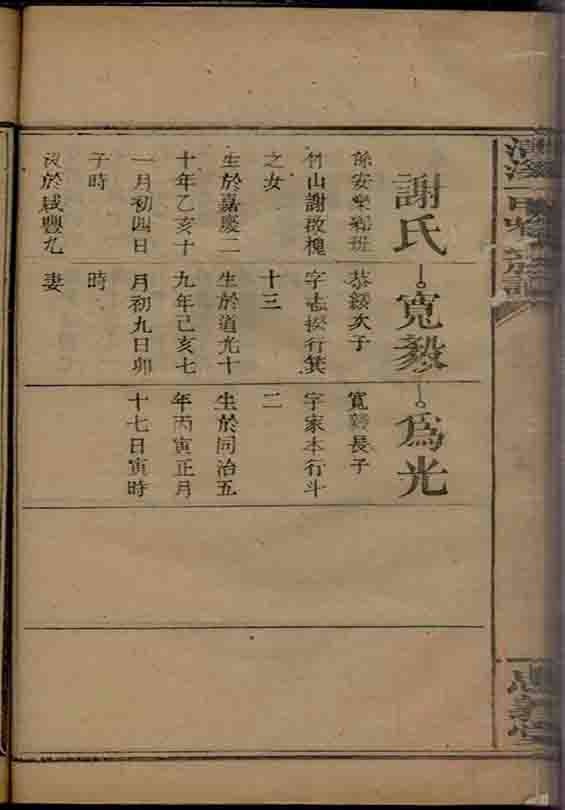 謝氏
餘安樂鄉班
竹山謝啟槐
之女
生於嘉慶二
十年乙亥十
一月初四日
子時
沒於咸豐九
寬毅
恭綏次子
字志揆行箕
十三
生於道光十
九年己亥七
月初九日卯
時
妻
爲光
寬毅長子
字家本行斗
二
生於同治五
年丙寅正月
十七日寅時